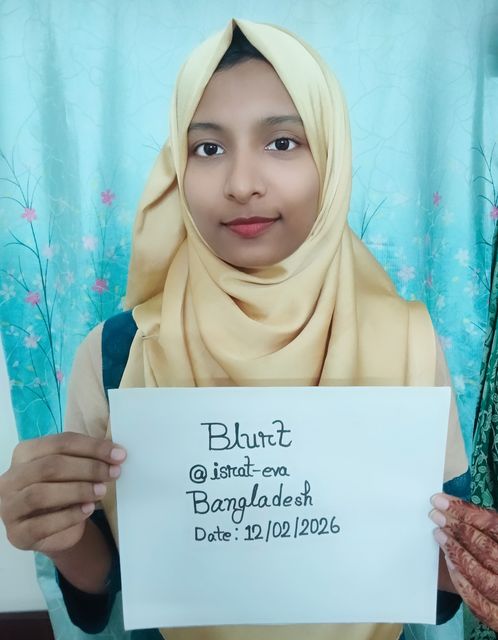 Blurt
@israt-eva
Bangladesh
Date: 12/02/2026